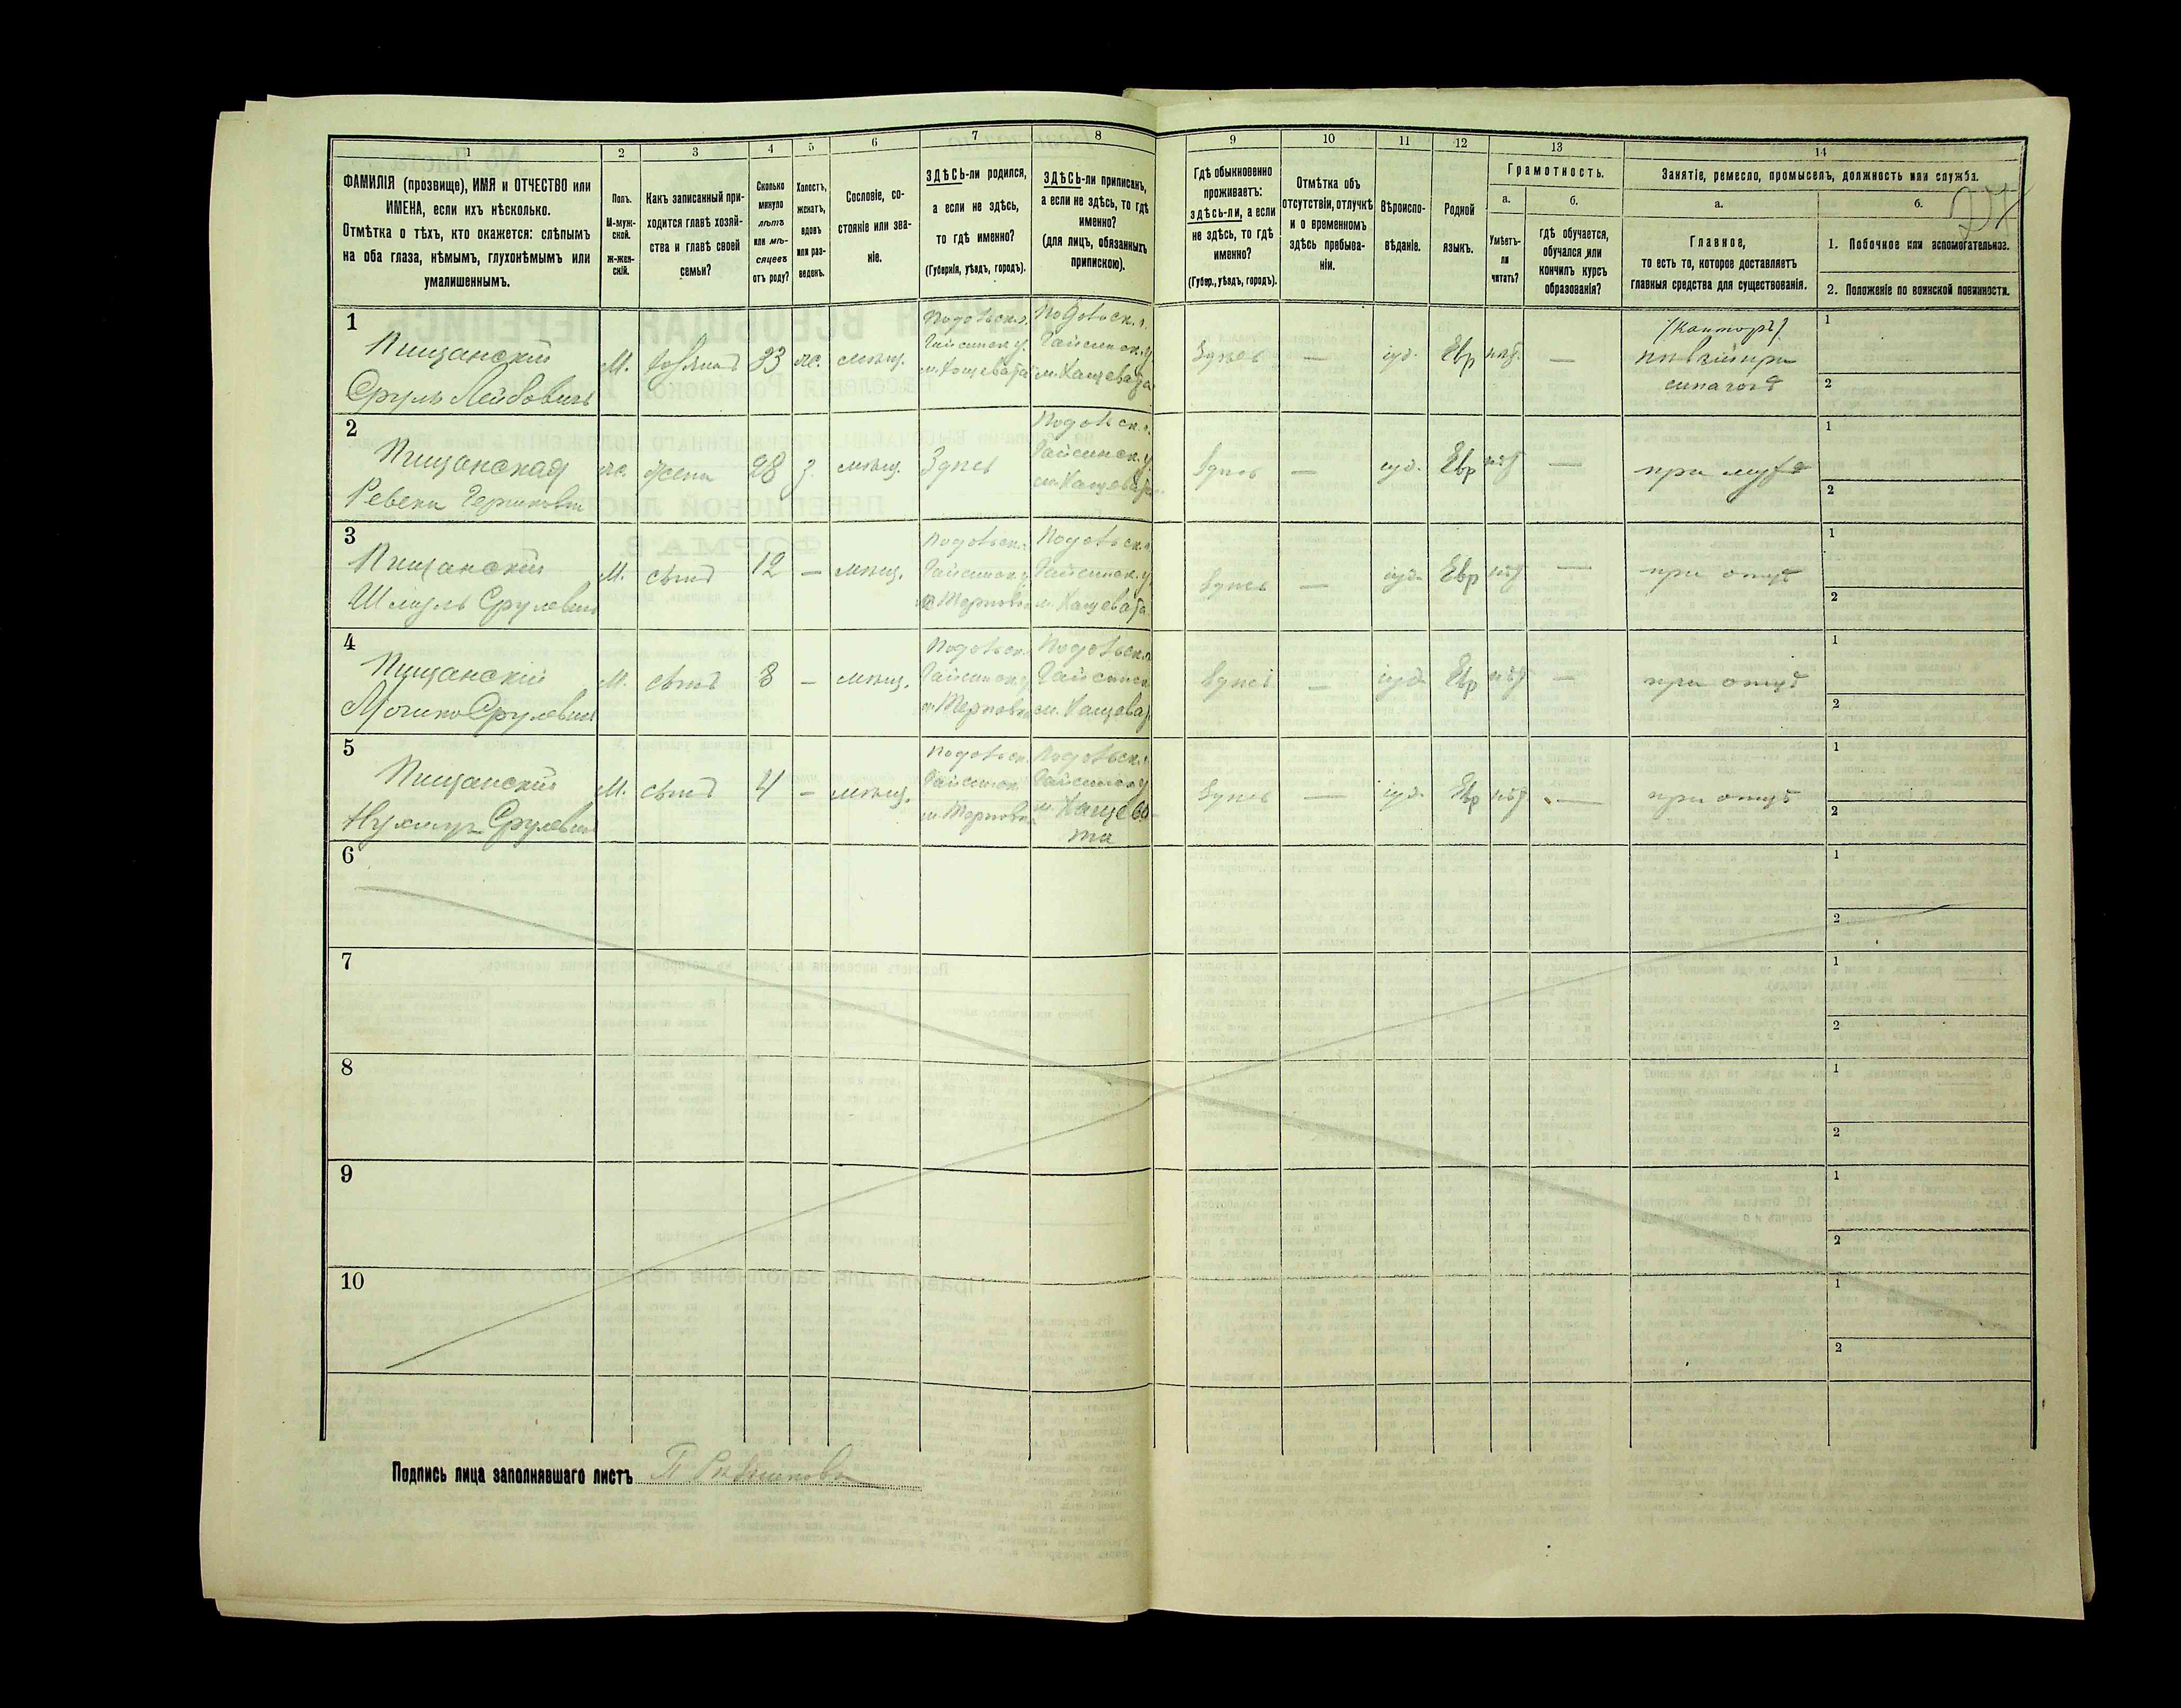 1
2
3
4
5
6
7
8
9
10
11
12
13
14
ФАМИЛІЯ (прозвище), ИМЯ и ОТЧЕСТВО или
ИМЕНА, если ихъ нѣсколько.
Отмѣтка о тѣхъ, кто окажется: слѣпымъ
на оба глаза, нѣмымъ, глухонѣмымъ или
умалишеннымъ.
Полъ.
М-муж-
ской.
ж-жен-
скій.
Какъ записанный при-
ходится главѣ хозяй-
ства и главѣ своей
семьи?
Сколько
минуло
лѣтъ
или мѣ-
сяцевъ
отъ роду?
Холостъ,
женатъ,
вдовъ
или раз-
веденъ.
Сословіе, со-
стояніе или зва-
ніе.
ЗДѢСЬ-ли родился,
а если не здѣсь,
то гдѣ именно?
(Губернія, уѣздъ, городъ).
ЗДѢСЬ-ли приписанъ,
а если не здѣсь, то гдѣ
именно?
(для лицъ, обязанныхъ
припискою).
Гдѣ обыкновенно
проживаетъ:
здѣсь-ли, а если
не здѣсь, то гдѣ
именно?
(Губер., уѣздъ, городъ).
Отмѣтка объ
отсутствіи, отлучкѣ
и о временномъ
здѣсь пребыва-
ніи.
Вѣроиспо-
вѣданіе.
Родной
языкъ.
Грамотность.
а.
Умѣетъ-
ли
читать?
б.
гдѣ обучается,
обучался или
кончилъ курсъ
образованія?
Занятіе, ремесло, промыселъ, должность или служба.
а.
Главное,
то есть то, которое доставляетъ
главныя средства для существованія.
б.
1. Побочное или вспомогательное.
2. Положеніе по воинской повинности.
1
Пищанскій
Сруль Лейбовичъ
М.
33
же.
мѣщ.
Подольск. г.
Гайсинск. у.
м. Хощевата
Подольск. г.
Гайсинск. у.
м. Хащевата
Здѣсь
—
іуд.
Евр
—
синагогѣ
1
2
2
Пищанская
Ревека
же.
жена
28
з.
мѣщ.
Здѣсь
Подольск. г.
Гайсинск. у.
м. Хащевата
Здѣсь
—
іуд.
Евр
—
при мужѣ
1
2
3
Пищанскій
Шмуль Срулевичъ
М.
сынъ
12
—
мѣщ.
Подольск. г.
Гайсинск. у.
м. Терновка
Подольск. г.
Гайсинск. у.
м. Хащевата
Здѣсь
—
іуд.
Евр
—
при отцѣ
1
2
4
Пищанскій
Срулевичъ
М.
сынъ
8
—
мѣщ.
Подольск.
Гайсинск. у.
м. Терновка
Подольск. г.
Гайсинск.
м. Хащеват
Здѣсь
—
іуд.
Евр
—
при отцѣ
1
2
5
Пищанскій
Срулевичъ
М.
сынъ
4
—
мѣщ.
Подольск.
Гайсинск.
м. Терновка
Подольск. г.
Гайсинск. у
м. Хащева-
та
Здѣсь
—
іуд.
Евр
—
при отцѣ
1
2
6
1
2
7
1
2
8
1
2
9
1
2
10
1
2
Подпись лица заполнявшаго листъ